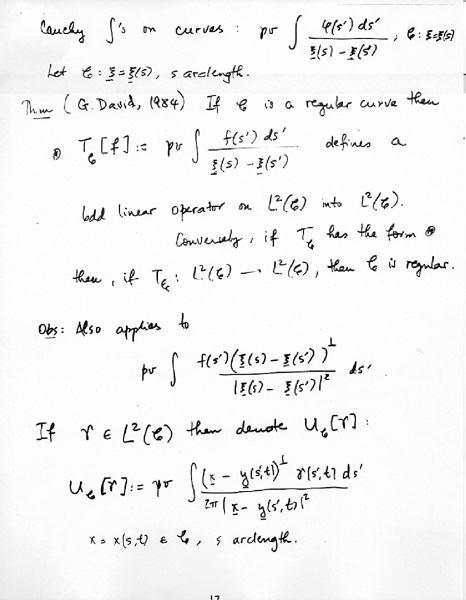 Cauchy ∫'s on curves : pv ∫ φ(s') ds' / ξ(s) - ξ(s') , C : ξ = ξ(s)
Let C : ξ = ξ(s), s arclength.
Thm (G. David, 1984) If C is a regular curve then
⊛ T_C [f] := pv ∫ f(s') ds' / ξ(s) - ξ(s') defines a
bdd linear operator on L²(C) into L²(C).
Conversely, if T_C has the form ⊛
then, if T_C : L²(C) → L²(C), then C is regular.
Obs: Also applies to
pv ∫ f(s') (ξ(s) - ξ(s'))^⊥ / |ξ(s) - ξ(s')|² ds'
If γ ∈ L²(C) then denote U_C[γ] :
U_C[γ] := pv ∫ (x - y(s',t))^⊥ γ(s',t) ds' / 2π |x - y(s',t)|²
x = x(s,t) ∈ C, s arclength.